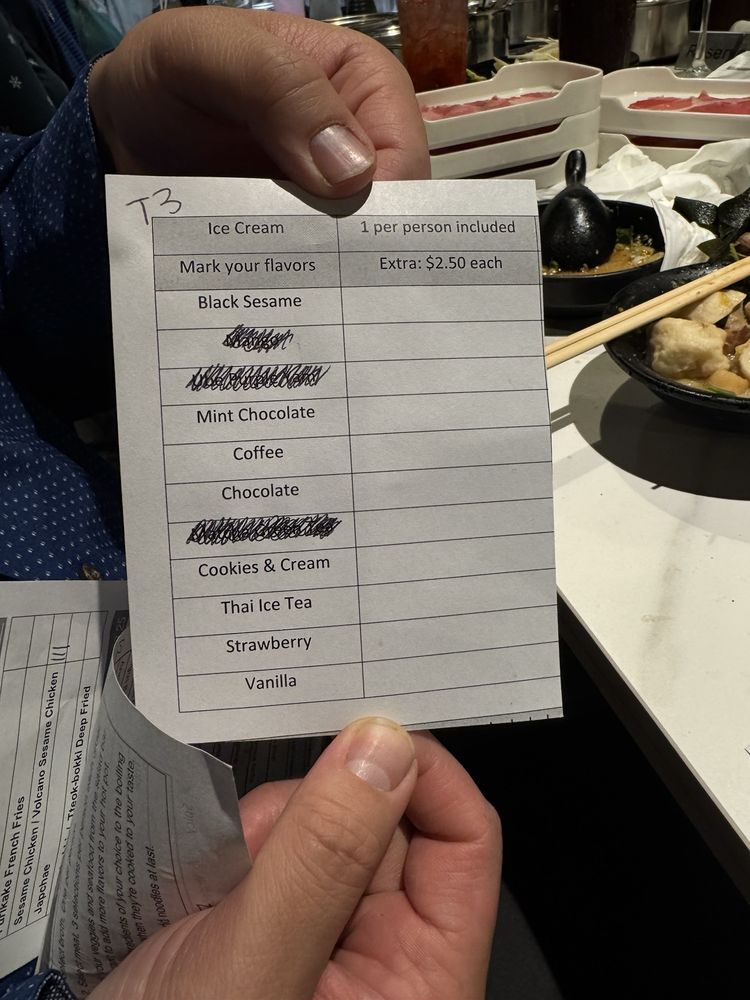 T3
Ice Cream 1 per person included
Mark your flavors Extra: $2.50 each
Black Sesame
Mint Chocolate
Coffee
Chocolate
Cookies & Cream
Thai Ice Tea
Strawberry
Vanilla
French Fries
Sesame Chicken / Volcano Sesame Chicken
Tteok-bokki Deep Fried
Japchae
your veggies and seafood from the
to add more flavors to your hot pot.
of your choice to the boiling
when they're cooked to your taste.
noodles at last.